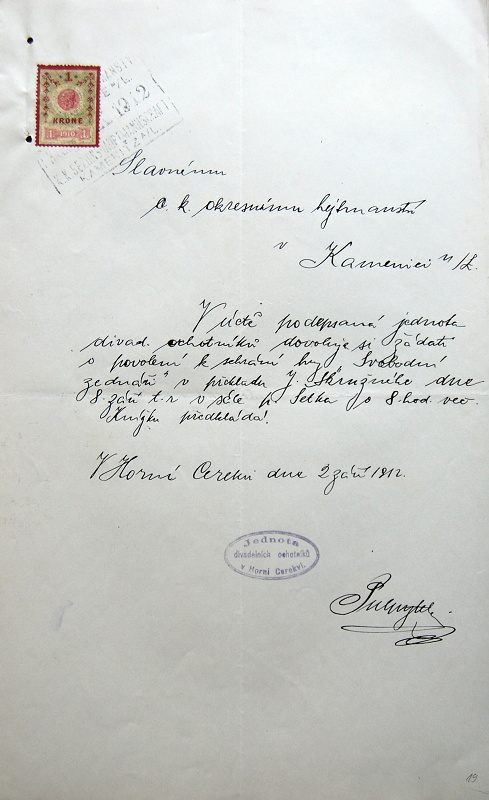 1
KRONE
1 1910 1
1912
Slavnému
c. k. okresnímu hejtmanství
v
Kamenici n/L.
V úctě podepsaná jednota
divad. ochotníků dovoluje si žádati
o povolení k sehrání hry "Svobodní
zednáři" v překladu J. Skružného dne
8. září t. r. v sále p. Selka o 8. hod. več.
Knížku předkládá.
V Horní Cerekvi dne 2 září 1912.
Jednota
divadelních ochotníků
v Horní Cerekvi.
19